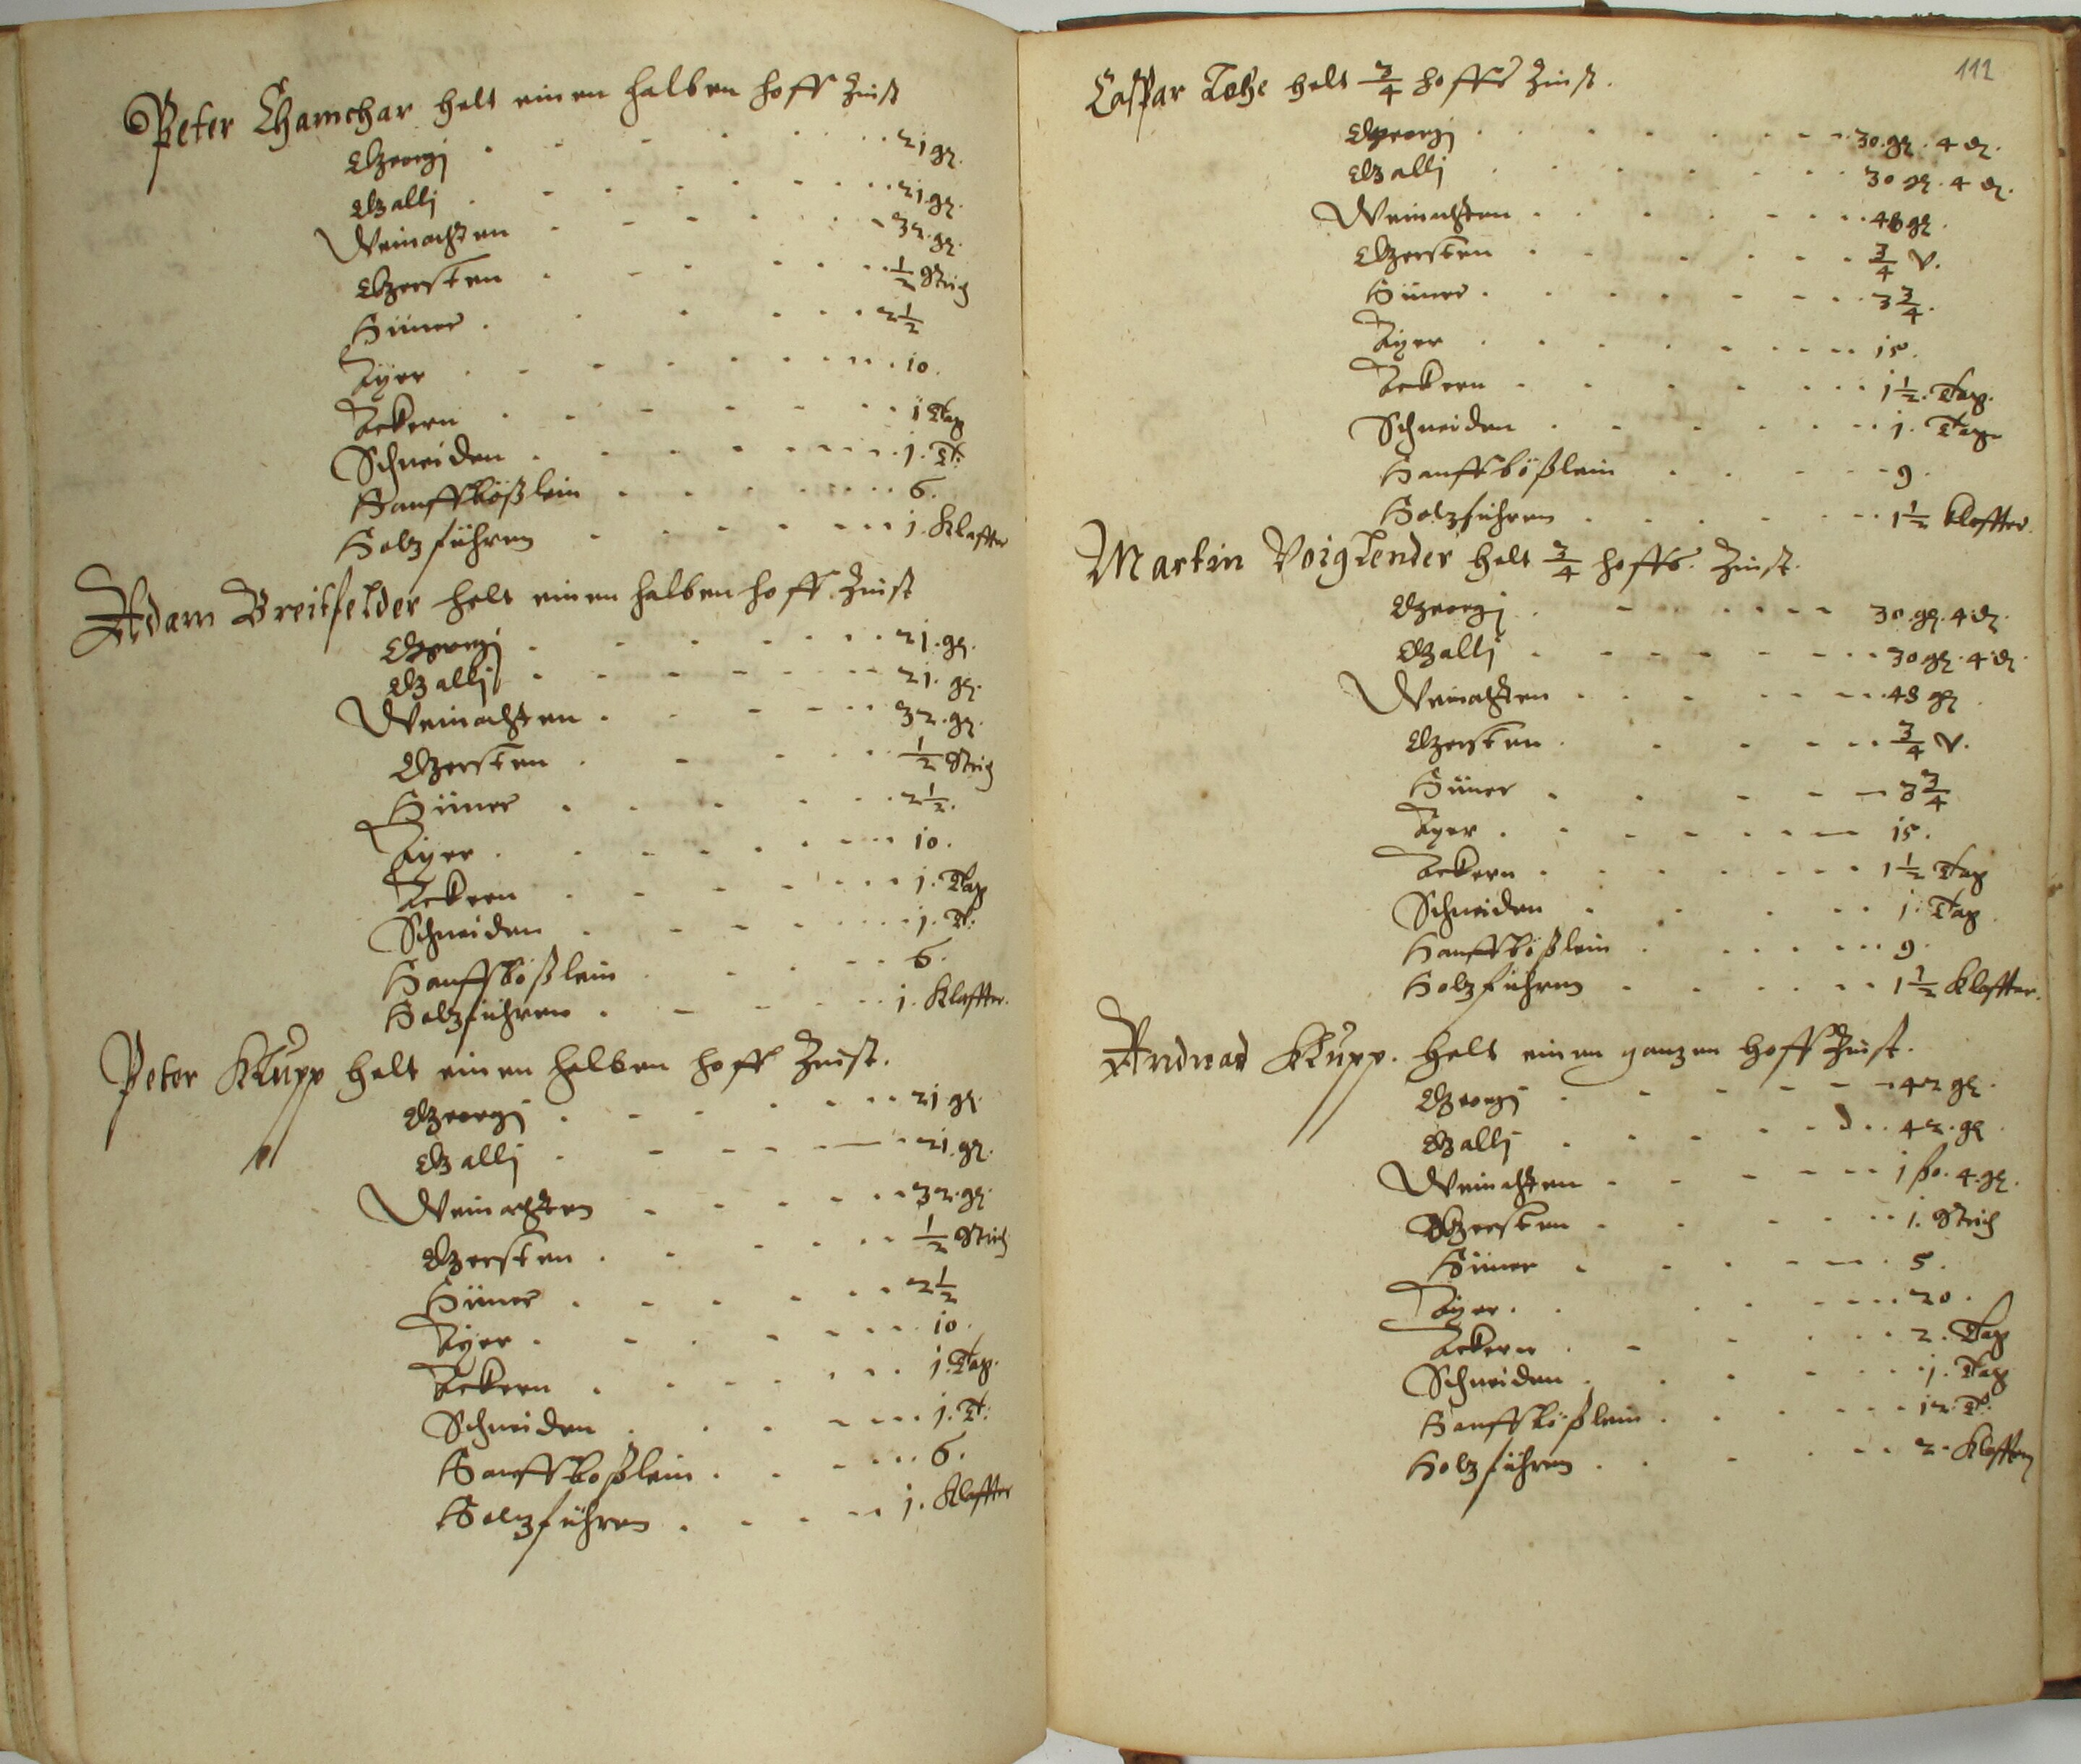 Peter Chamchar helt einen halben hoff Zinst
Georgj . . . . . . 21 gr.
Gallj . . . . . . 21. gr.
Weinachten . . . . . . 32. gr.
Gersten . . . . . . 1/2 Strich
Hüner . . . . . . 2 1/2
Ayer . . . . . . 10.
Ackern . . . . . . 1 Tag
Schneiden . . . . . . 1. T:
Hanffbößlein . . . . . . 6.
Holz führen . . . . . . 1. Klaffter
Adam Breitfelder helt einen halben hoff Zinst
Georgj . . . . . . 21. gr.
Gallj . . . . . . 21. gr.
Weinachten . . . . . . 32. gr.
Gersten . . . . . . 1/2 Strich
Hüner . . . . . . 2 1/2.
Ayer . . . . . . 10.
Ackern . . . . . . 1. Tag
Schneiden . . . . . . 1. T:
Hanffbößlein . . . . . . 6.
Holzführen . . . . . . 1. Klaffter.
Peter Klupp helt einen halben hoff Zinst.
Georgj . . . . . . 21 gr.
Gallj . . . . . . 21. gr.
Weinachten . . . . . . 32. gr.
Gersten . . . . . . 1/2 Strich
Hüner . . . . . . 2 1/2
Ayer . . . . . . 10.
Ackern . . . . . . 1. Tag.
Schneiden . . . . . . 1. T:
Hanffboßlein . . . . . . 6.
Holzführen . . . . . . 1. Klaffter
112
Caspar helt 3/4 hoffs Zinst.
Georgj . . . . . . 30. gr. 4 d.
Gallj . . . . . . 30 gr. 4 d.
Weinachten . . . . . . 48 gr.
Gersten . . . . . . 3/4 V.
Hüner . . . . . . 3 3/4.
Ayer . . . . . . 15.
Ackern . . . . . . 1 1/2. Tag.
Schneiden . . . . . . 1. Tag
Hanffbößlein . . . . . . 9.
Holzführen . . . . . . 1 1/2 Klaffter.
Martin Voigtlender helt 3/4 hoffs. Zinst.
Georgj . . . . . . 30. gr. 4 d.
Gallj . . . . . . 30 gr. 4 d.
Weinachten . . . . . . 48 gr.
Gersten . . . . . . 3/4 V.
Hüner . . . . . . 3 3/4
Ayer . . . . . . 15.
Ackern . . . . . . 1 1/2 Tag
Schneiden . . . . . . 1. Tag.
Hanffbößlein . . . . . . 9.
Holzführen . . . . . . 1 1/2 Klaffter.
Andreas Klupp. helt einen ganzen hoff Zinst.
Georgj . . . . . . 42 gr.
Gallj . . . . . . 42. gr.
Weinachten . . . . . . 1 ßo. 4. gr.
Gersten . . . . . . 1. Strich
Hüner . . . . . . 5.
Ayer . . . . . . 20.
Ackern . . . . . . 2. Tag
Schneiden . . . . . . 1. Tag
Hanffbößlein . . . . . . 12. T.
Holz führen . . . . . . 2. Klaffter